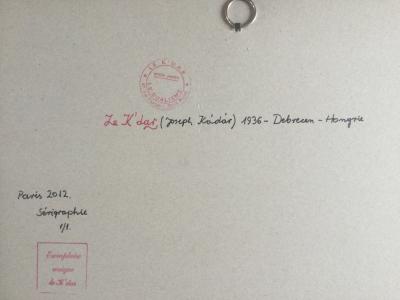 ★ LE K'DAR ★
LE K'dar, (Joseph Kádár) 1936 - Debrecen - Hongrie
Paris 2012.
Sérigraphie
1/1.
Exemplaire
unique
de K'dar